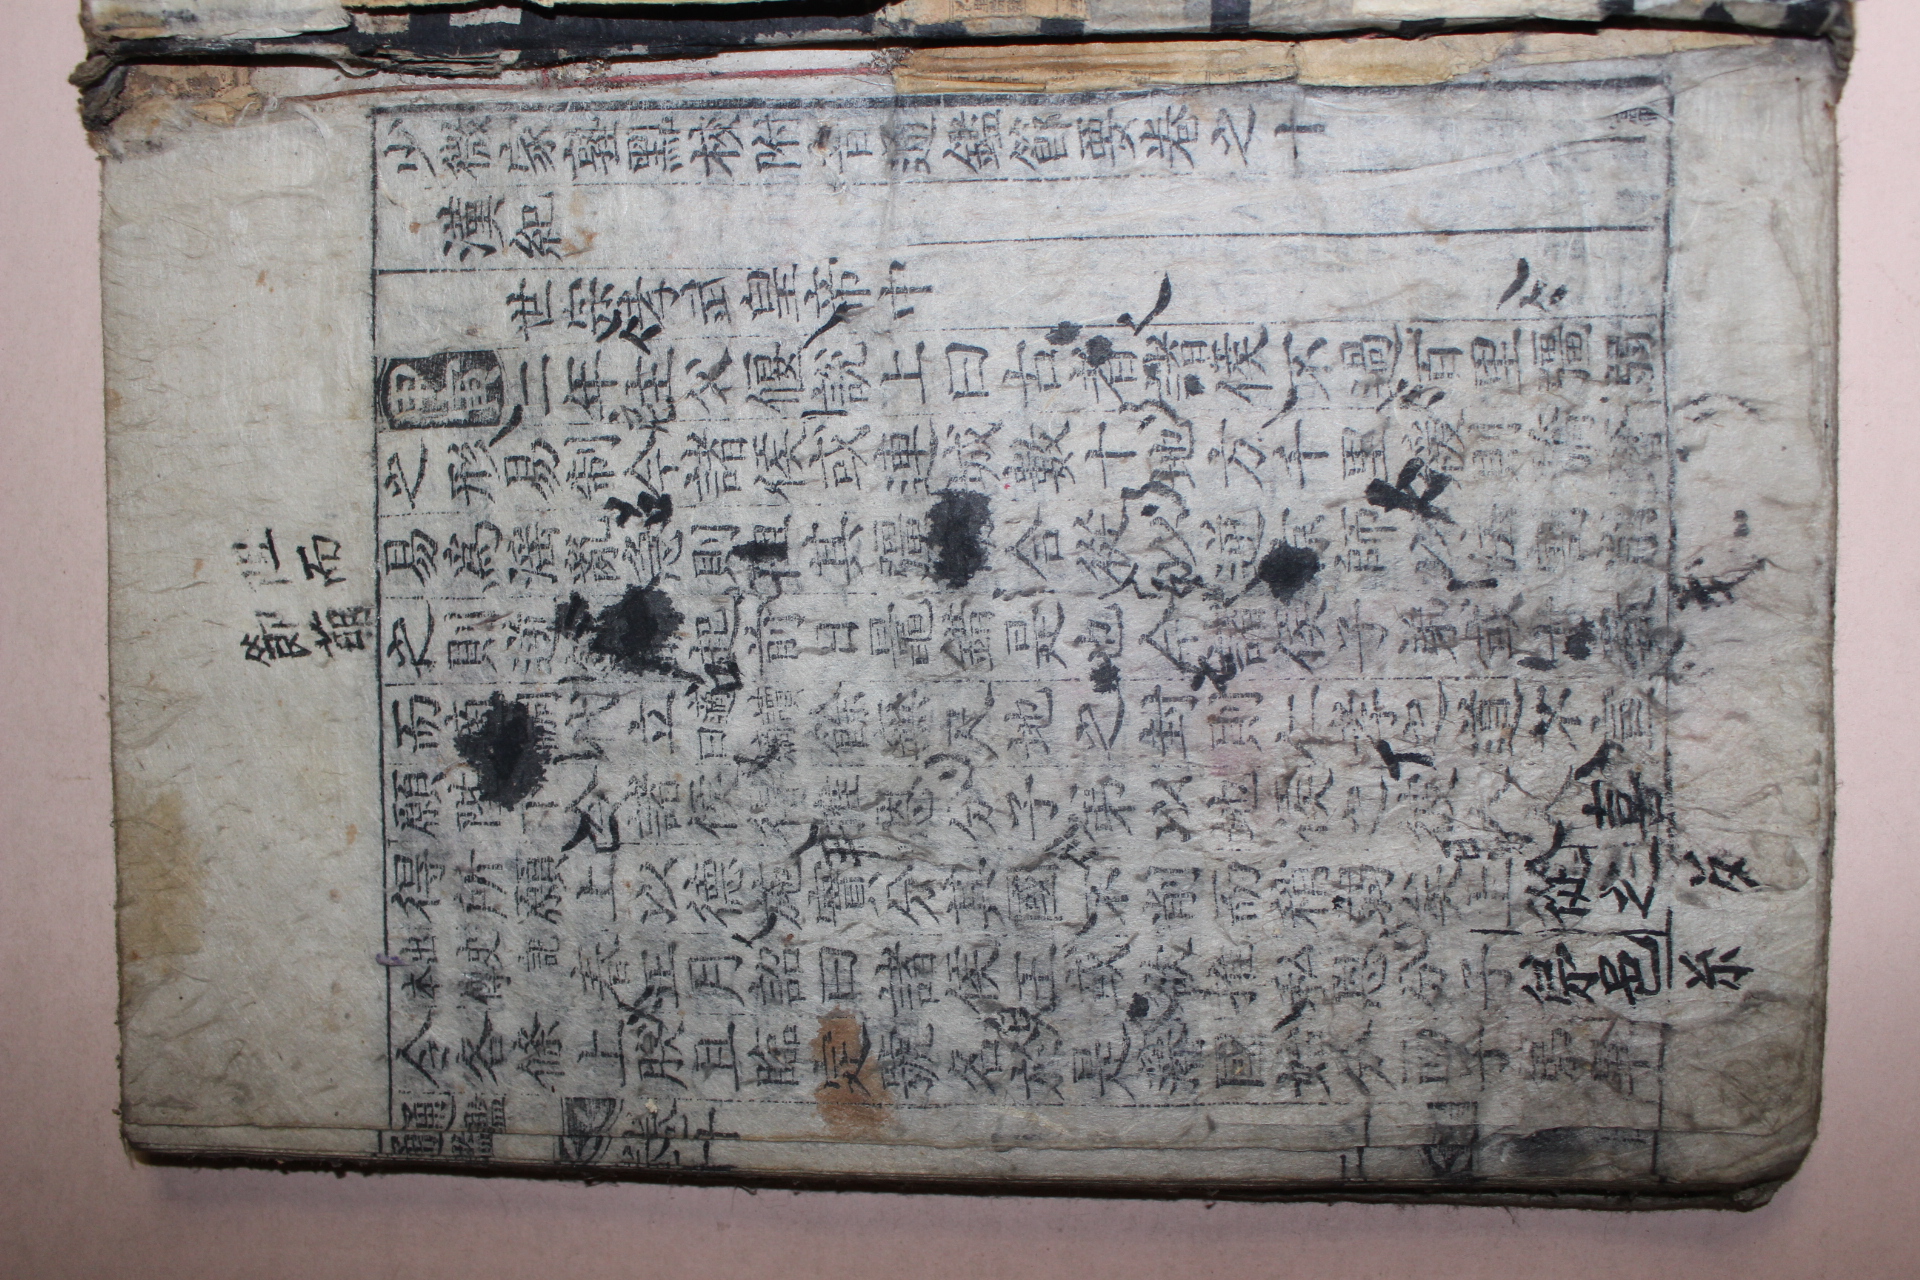 少微家塾點校附音通鑑節要卷之十
漢紀
世宗孝武皇帝中
甲寅二年主父偃說上曰古者諸侯不過百里彊弱
之形易制今諸侯或連城數十地方千里緩則驕奢
易爲滛亂急則阻其彊合從以逆京師以法割削
之則逆起前日鼂錯是也今諸侯子弟或十數
而適嗣代立餘無尺地之封則仁孝之道不宣
願陛下令諸侯得推恩分子弟以地侯之彼人人喜
得所願上以德施實分其國不削而稍弱矣上從之
出史記
本傳
春正月詔曰諸侯王或欲推私恩分子弟邑
令各條上朕且臨定號名於是藩國始分而子弟畢
通鑑
卷十
一
阻而
節萌